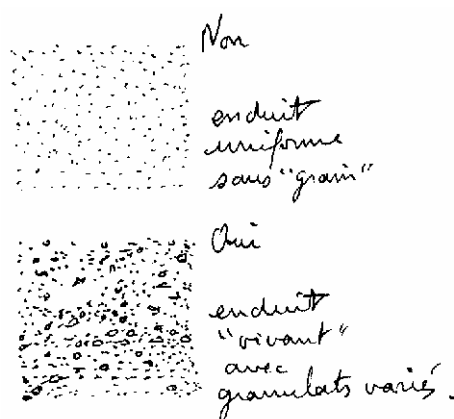 Non
enduit
uniforme
sans "grain"
Oui
enduit
"vivant"
avec
granulats variés.